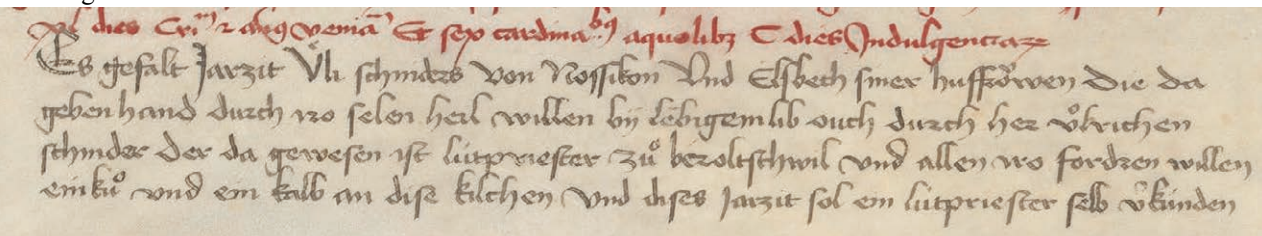 xl dies Cri᷑ ⁊ āng veniā Et sex cardinabꝫ aquolibꝫ C dies Indulgenciarꝝ
Es gefalt Jarzit Uͤli schniders von Nossikon Vnd Elsbech siner huffroͮwen Die da
geben hand durch iro selen heil willen by lebigem lib ouch durch her vͦlrichen
schnider Der da gewesen ist lútpriester zuͦ beroltschwil vnd allen iro fordren willen
ein kuͦ vnd ein kalb an dise kilchen Vnd dises Jarzit sol ein lútpriester selb v̄kúnden